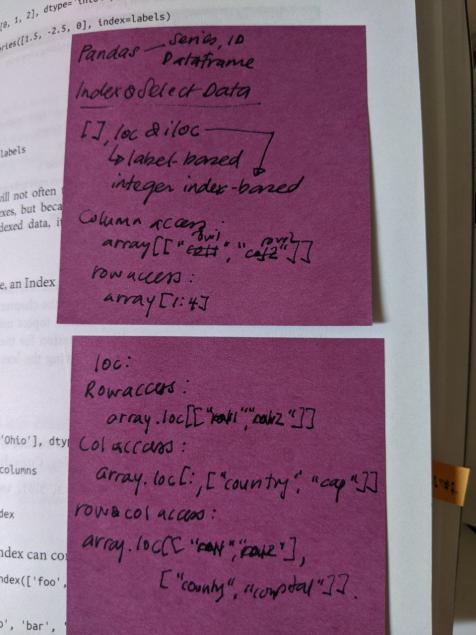 [0, 1, 2], dtype=
ries([1.5, -2.5, 0], index=labels)
labels
ill not often
xes, but beca
dexed data, i
e, an Index
'Ohio'], dty
columns
dex
ndex can co
ndex(['foo',
o', 'bar',
Pandas — Series, 1D
Dataframe
Index & Select Data
[], loc & iloc
↳ label-based
integer index-based
Column access:
array[["row1", "row2"]]
row access:
array[1:4]
loc:
Row access:
array.loc[["row1", "row2"]]
Col access:
array.loc[:, ["country", "cap"]]
row & col access:
array.loc[["row1", "row2"],
["county", "capital"]].